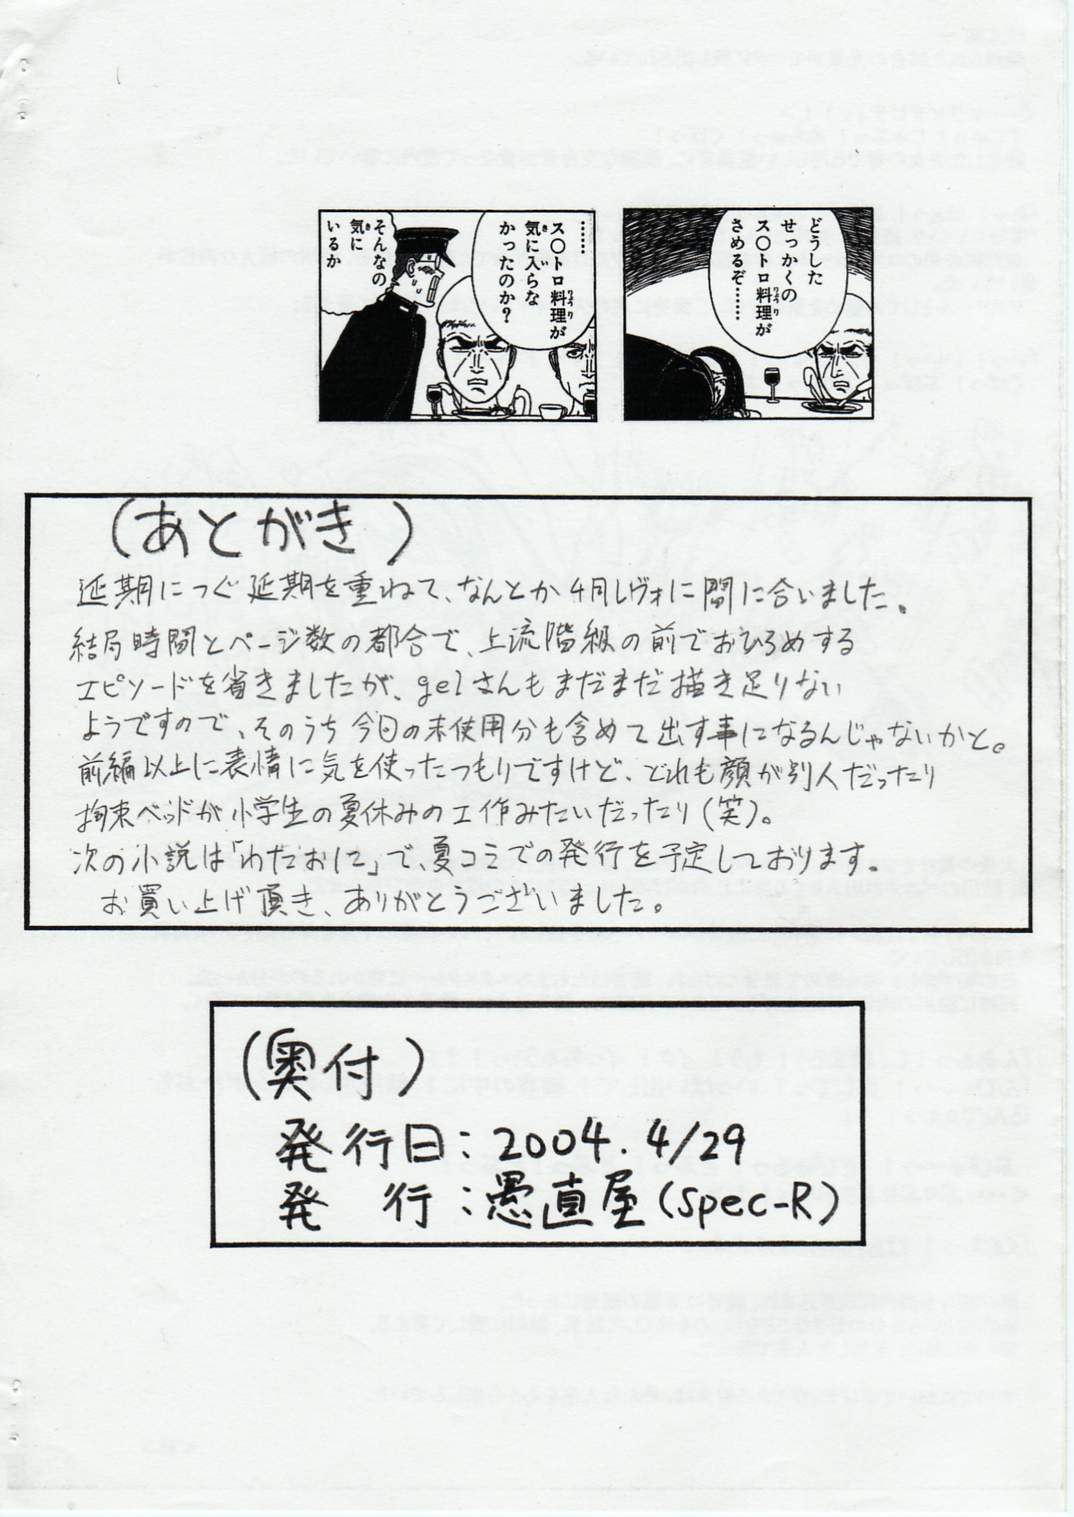 どうした
せっかくの
ス〇トロ料理が
さめるぞ……
……
ス〇トロ料理が
気に入らな
かったのか?
そんなの
気に
いるか
(あとがき)
延期につぐ延期を重ねて、なんとか4月レヴォに間に合いました。
結局時間とページ数の都合で、上流階級の前でおひろめする
エピソードを省きましたが、gelさんもまだまだ描き足りない
ようですので、そのうち今回の未使用分も含めて出す事になるんじゃないかと。
前編以上に表情に気を使ったつもりですけど、どれも顔が別人だったり
拘束ベッドが小学生の夏休みの工作みたいだったり(笑)。
次の小説は「わたおに」で、夏コミでの発行を予定しております。
お買い上げ頂き、ありがとうございました。
(奥付)
発行日:2004.4/29
発 行:愚直屋(Spec-R)